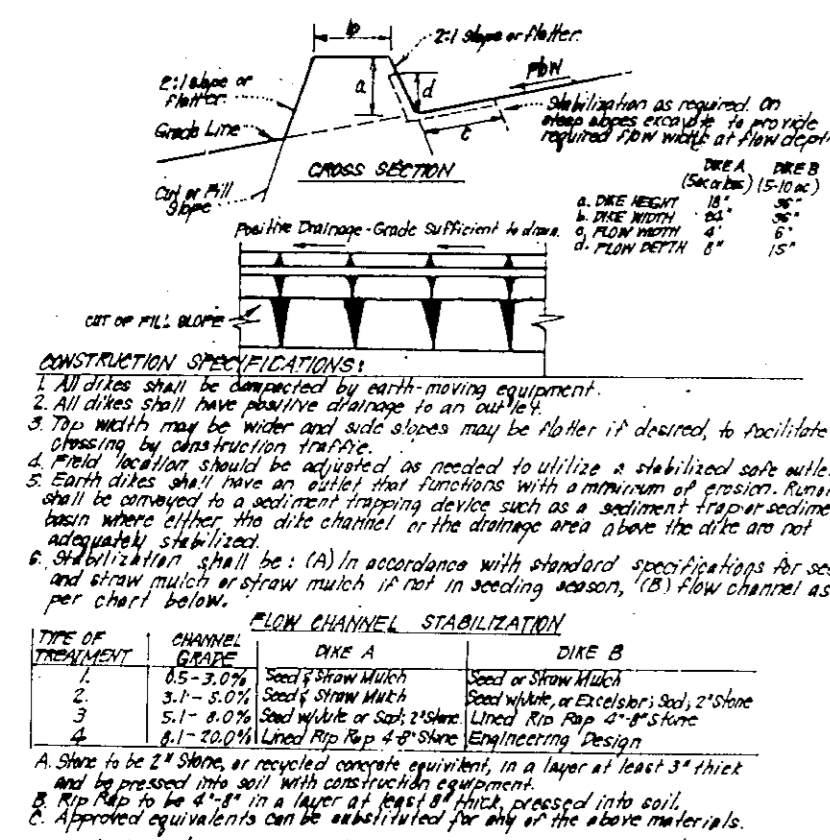 b
2:1 slope or flatter.
2:1 slope or flatter.
a
d
Flow
Grade Line
c
Stabilization as required. On
steep slopes excavate to provide
required flow width at flow depth
Cut or Fill
Slope
CROSS SECTION
DIKE A DIKE B
(5ac or less) (5-10 ac)
a. DIKE HEIGHT 18" 36"
b. DIKE WIDTH 24" 36"
c. FLOW WIDTH 4' 6'
d. FLOW DEPTH 8" 15"
Positive Drainage-Grade Sufficient to drain.
CUT OF FILL SLOPE
CONSTRUCTION SPECIFICATIONS:
1. All dikes shall be compacted by earth-moving equipment.
2. All dikes shall have positive drainage to an outlet.
3. Top width may be wider and side slopes may be flatter if desired, to facilitate
crossing by construction traffic.
4. Field location should be adjusted as needed to utilize a stabilized safe outle
5. Earth dikes shall have an outlet that functions with a minimum of erosion. Runo
shall be conveyed to a sediment trapping device such as a sediment trap or sedime
basin where either the dike channel or the drainage area above the dike are not
adequately stabilized.
6. Stabilization shall be: (A) In accordance with standard specifications for see
and straw mulch or straw mulch if not in seeding season, (B) flow channel as
per chart below.
FLOW CHANNEL STABILIZATION
TYPE OF TREATMENT CHANNEL GRADE DIKE A DIKE B
1. 0.5-3.0% Seed & Straw Mulch Seed or Straw Mulch
2. 3.1-5.0% Seed & Straw Mulch Seed w/Jute, or Excelsior; Sod; 2" Stone
3 5.1-8.0% Seed w/Jute or Sod; 2" Stone Lined Rip Rap 4"-8" Stone
4 8.1-20.0% Lined Rip Rap 4-8" Stone Engineering Design
A. Stone to be 2" Stone, or recycled concrete equivilent, in a layer at least 3" thick
and be pressed into soil with construction equipment.
B. Rip Rap to be 4"-8" in a layer at least 8" thick, pressed into soil.
C. Approved equivalents can be substituted for any of the above materials.